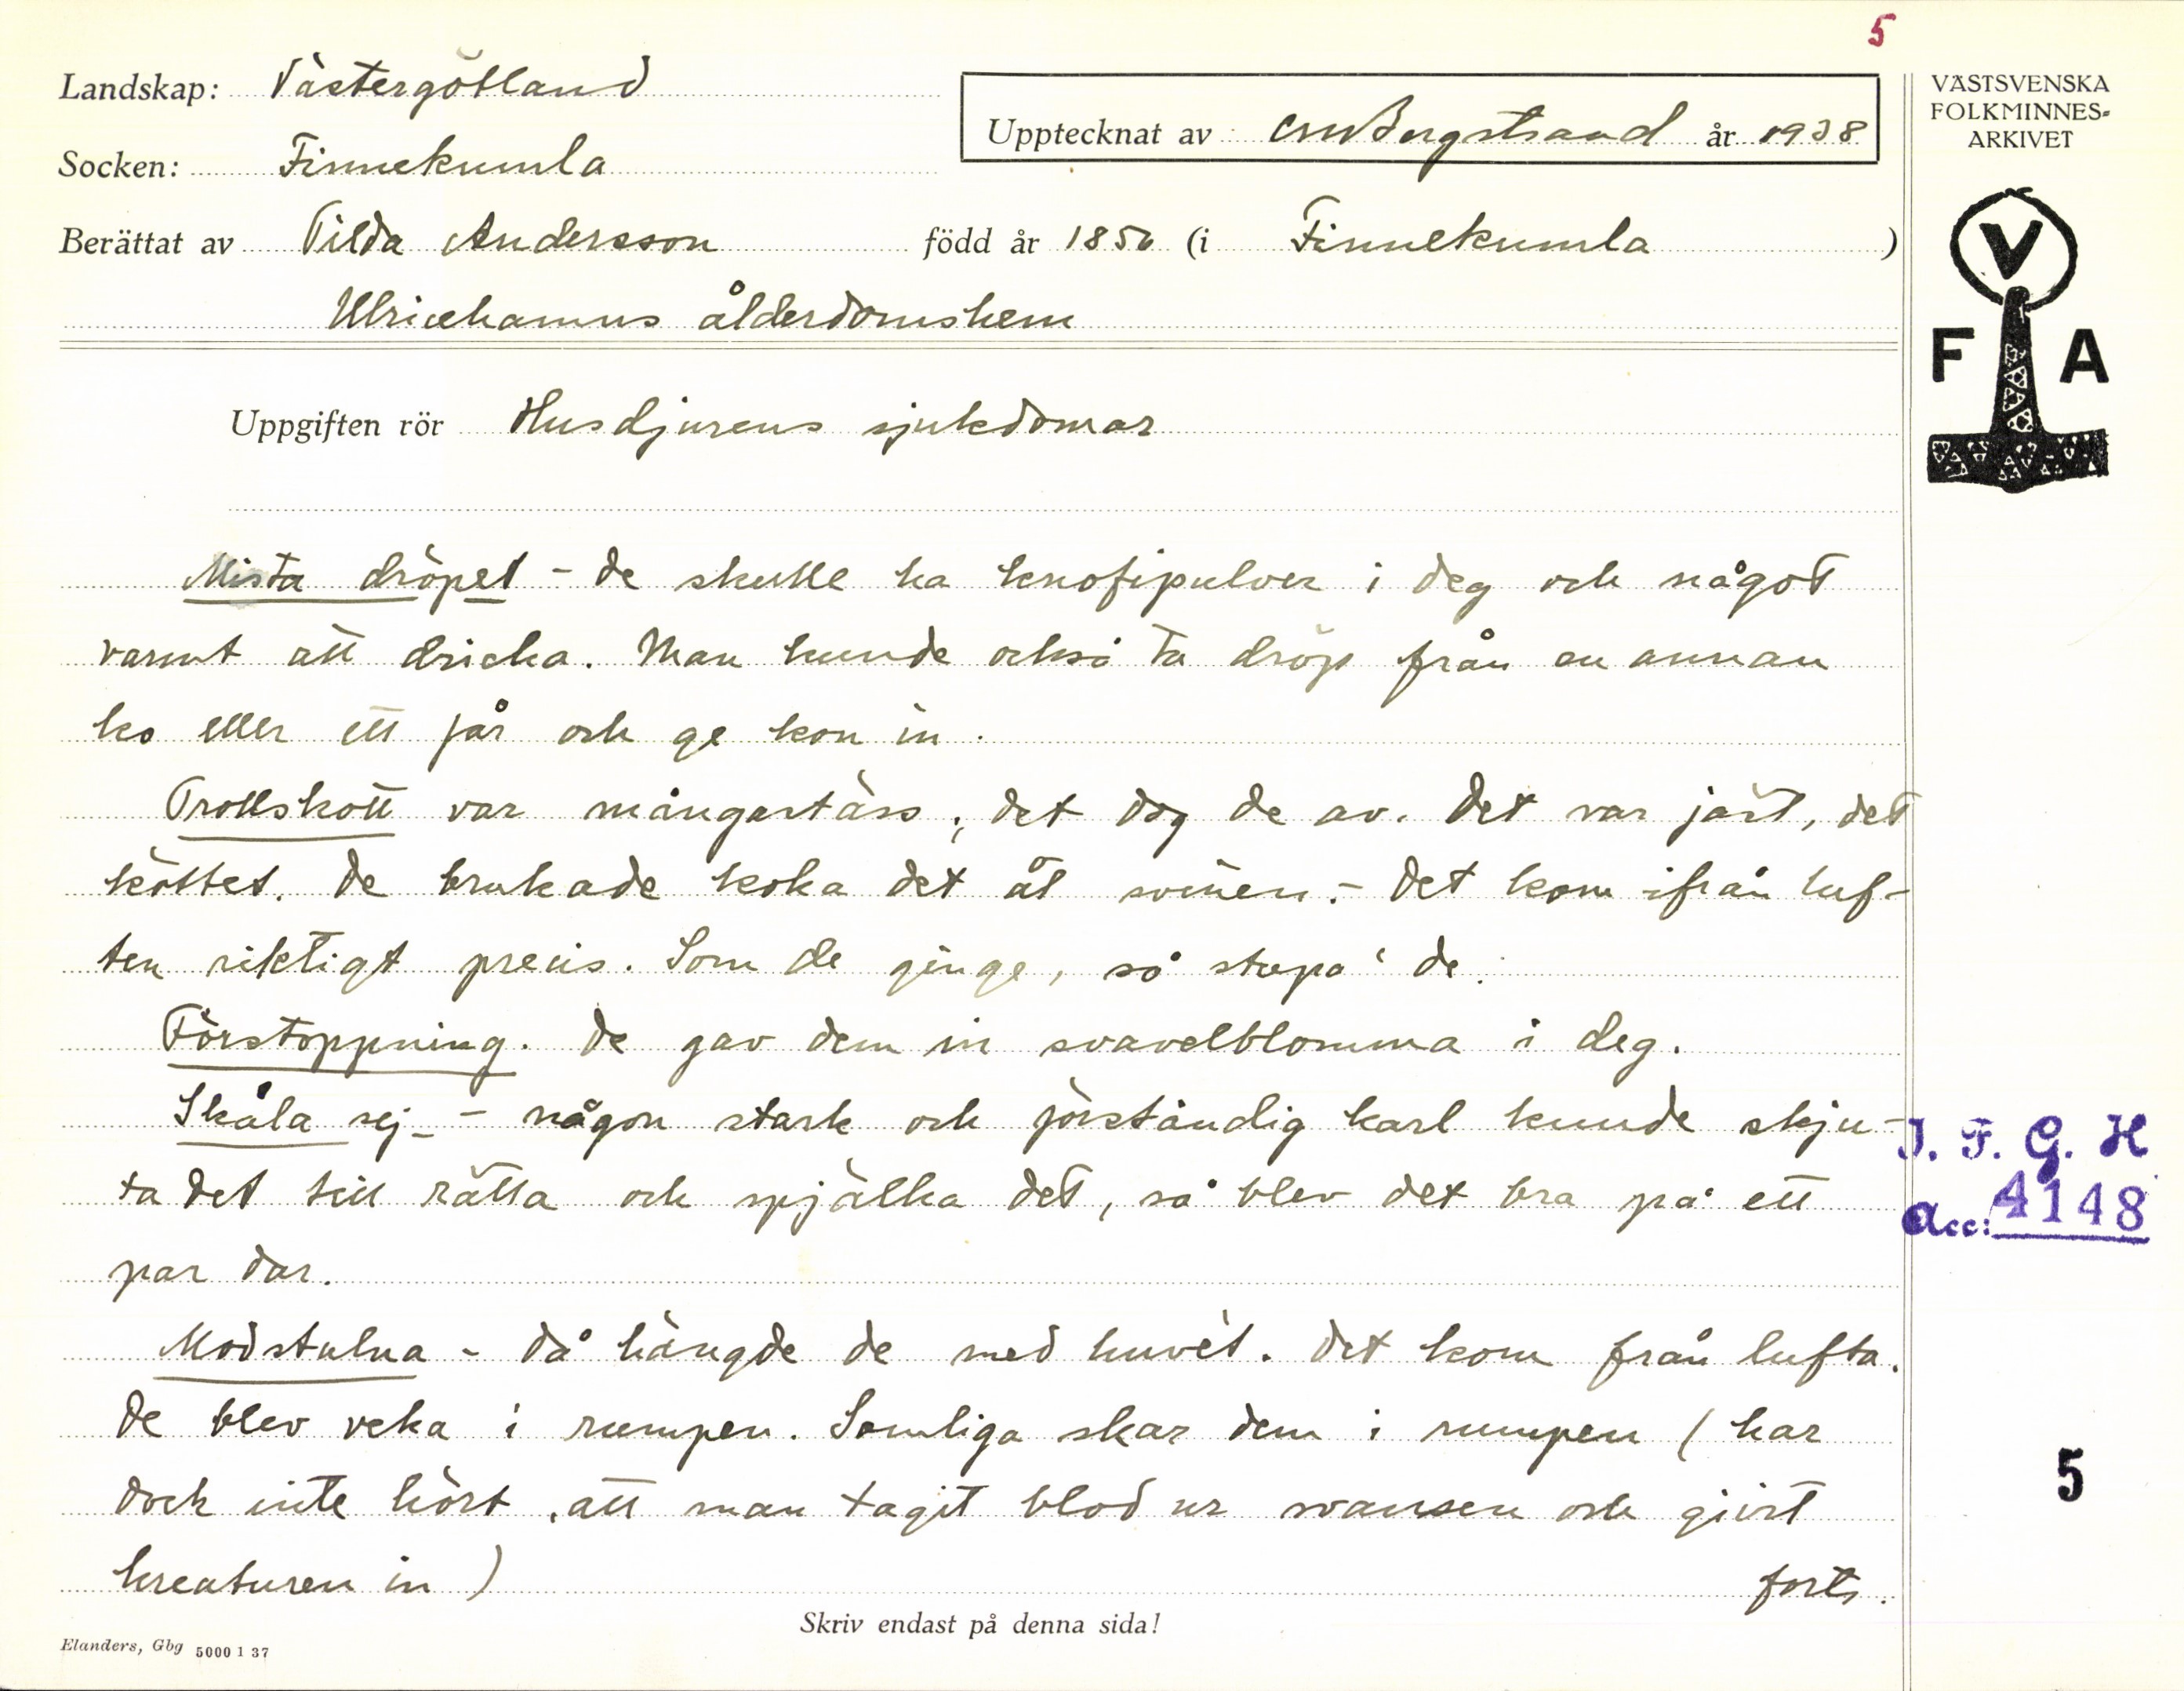 5
Landskap: Västergötland
Upptecknat av CMBergstrand år 1938
Socken: Finnekumla
Berättat av Tilda Andersson född år 1850 (i Finnekumla )
Ulricehamns ålderdomshem
VÄSTSVENSKA
FOLKMINNES-
ARKIVET
V
F A
Uppgiften rör Husdjurens sjukdomar
Mista dröpel - de skulle ha knofipulver i deg och något
varmt att dricka. Man kunde också ta dröp från en annan
ko eller ett får och ge kon in.
Trollskott var mångastäss, det dog de av. Det var jäst, det
köttet. De brukade koka det åt svinen. - Det kom ifrån luf-
ten riktigt precis. Som de ginge, så stupa' de.
Förstoppning. De gav dem in svavelblomma i deg.
Skåla sej - någon stark och förståndig karl kunde skju-
ta det till rätta och spjälka det, så blev det bra på ett
par dar.
Modstulna - då hängde de med huvet. Det kom från lufta.
De blev veka i rumpen. Somliga skar dem i rumpen (har
dock inte hört, att man tagit blod ur svansen och givit
kreaturen in)
forts.
I. F. G. H
Acc: 4148
5
Skriv endast på denna sida!
Elanders, Gbg 5000 1 37